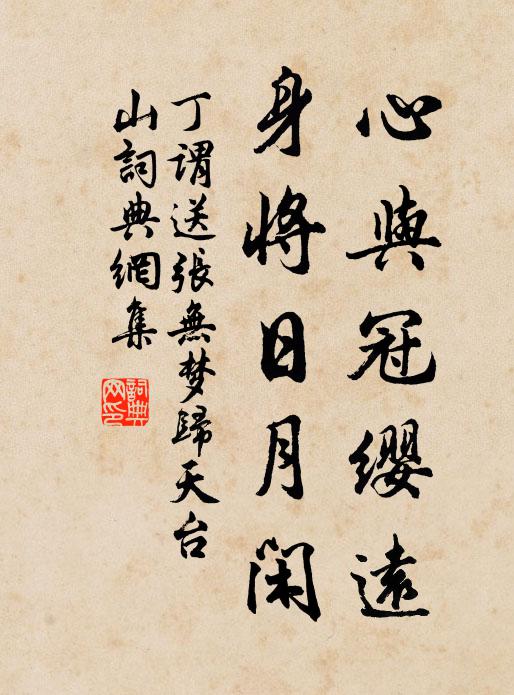 心與冠纓遠
身將日月閑
丁謂送張無梦歸天台
山詞典網集
詞典網印